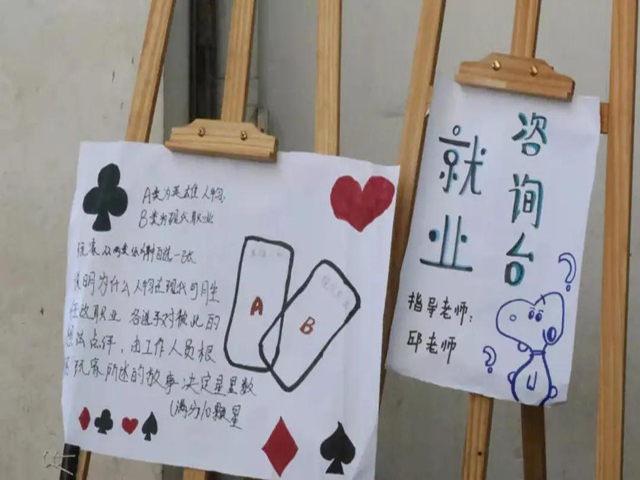 A类为英雄人物,
B类为现代职业
玩家从两类依附自选一张
说明为什么人物在现代可胜
任故职业 各选手对彼此的
想法点评，由工作人员根
玩家所述的故事决定星星数
(满分10颗星
A
B
就业
咨询台
指导老师:
邱老师